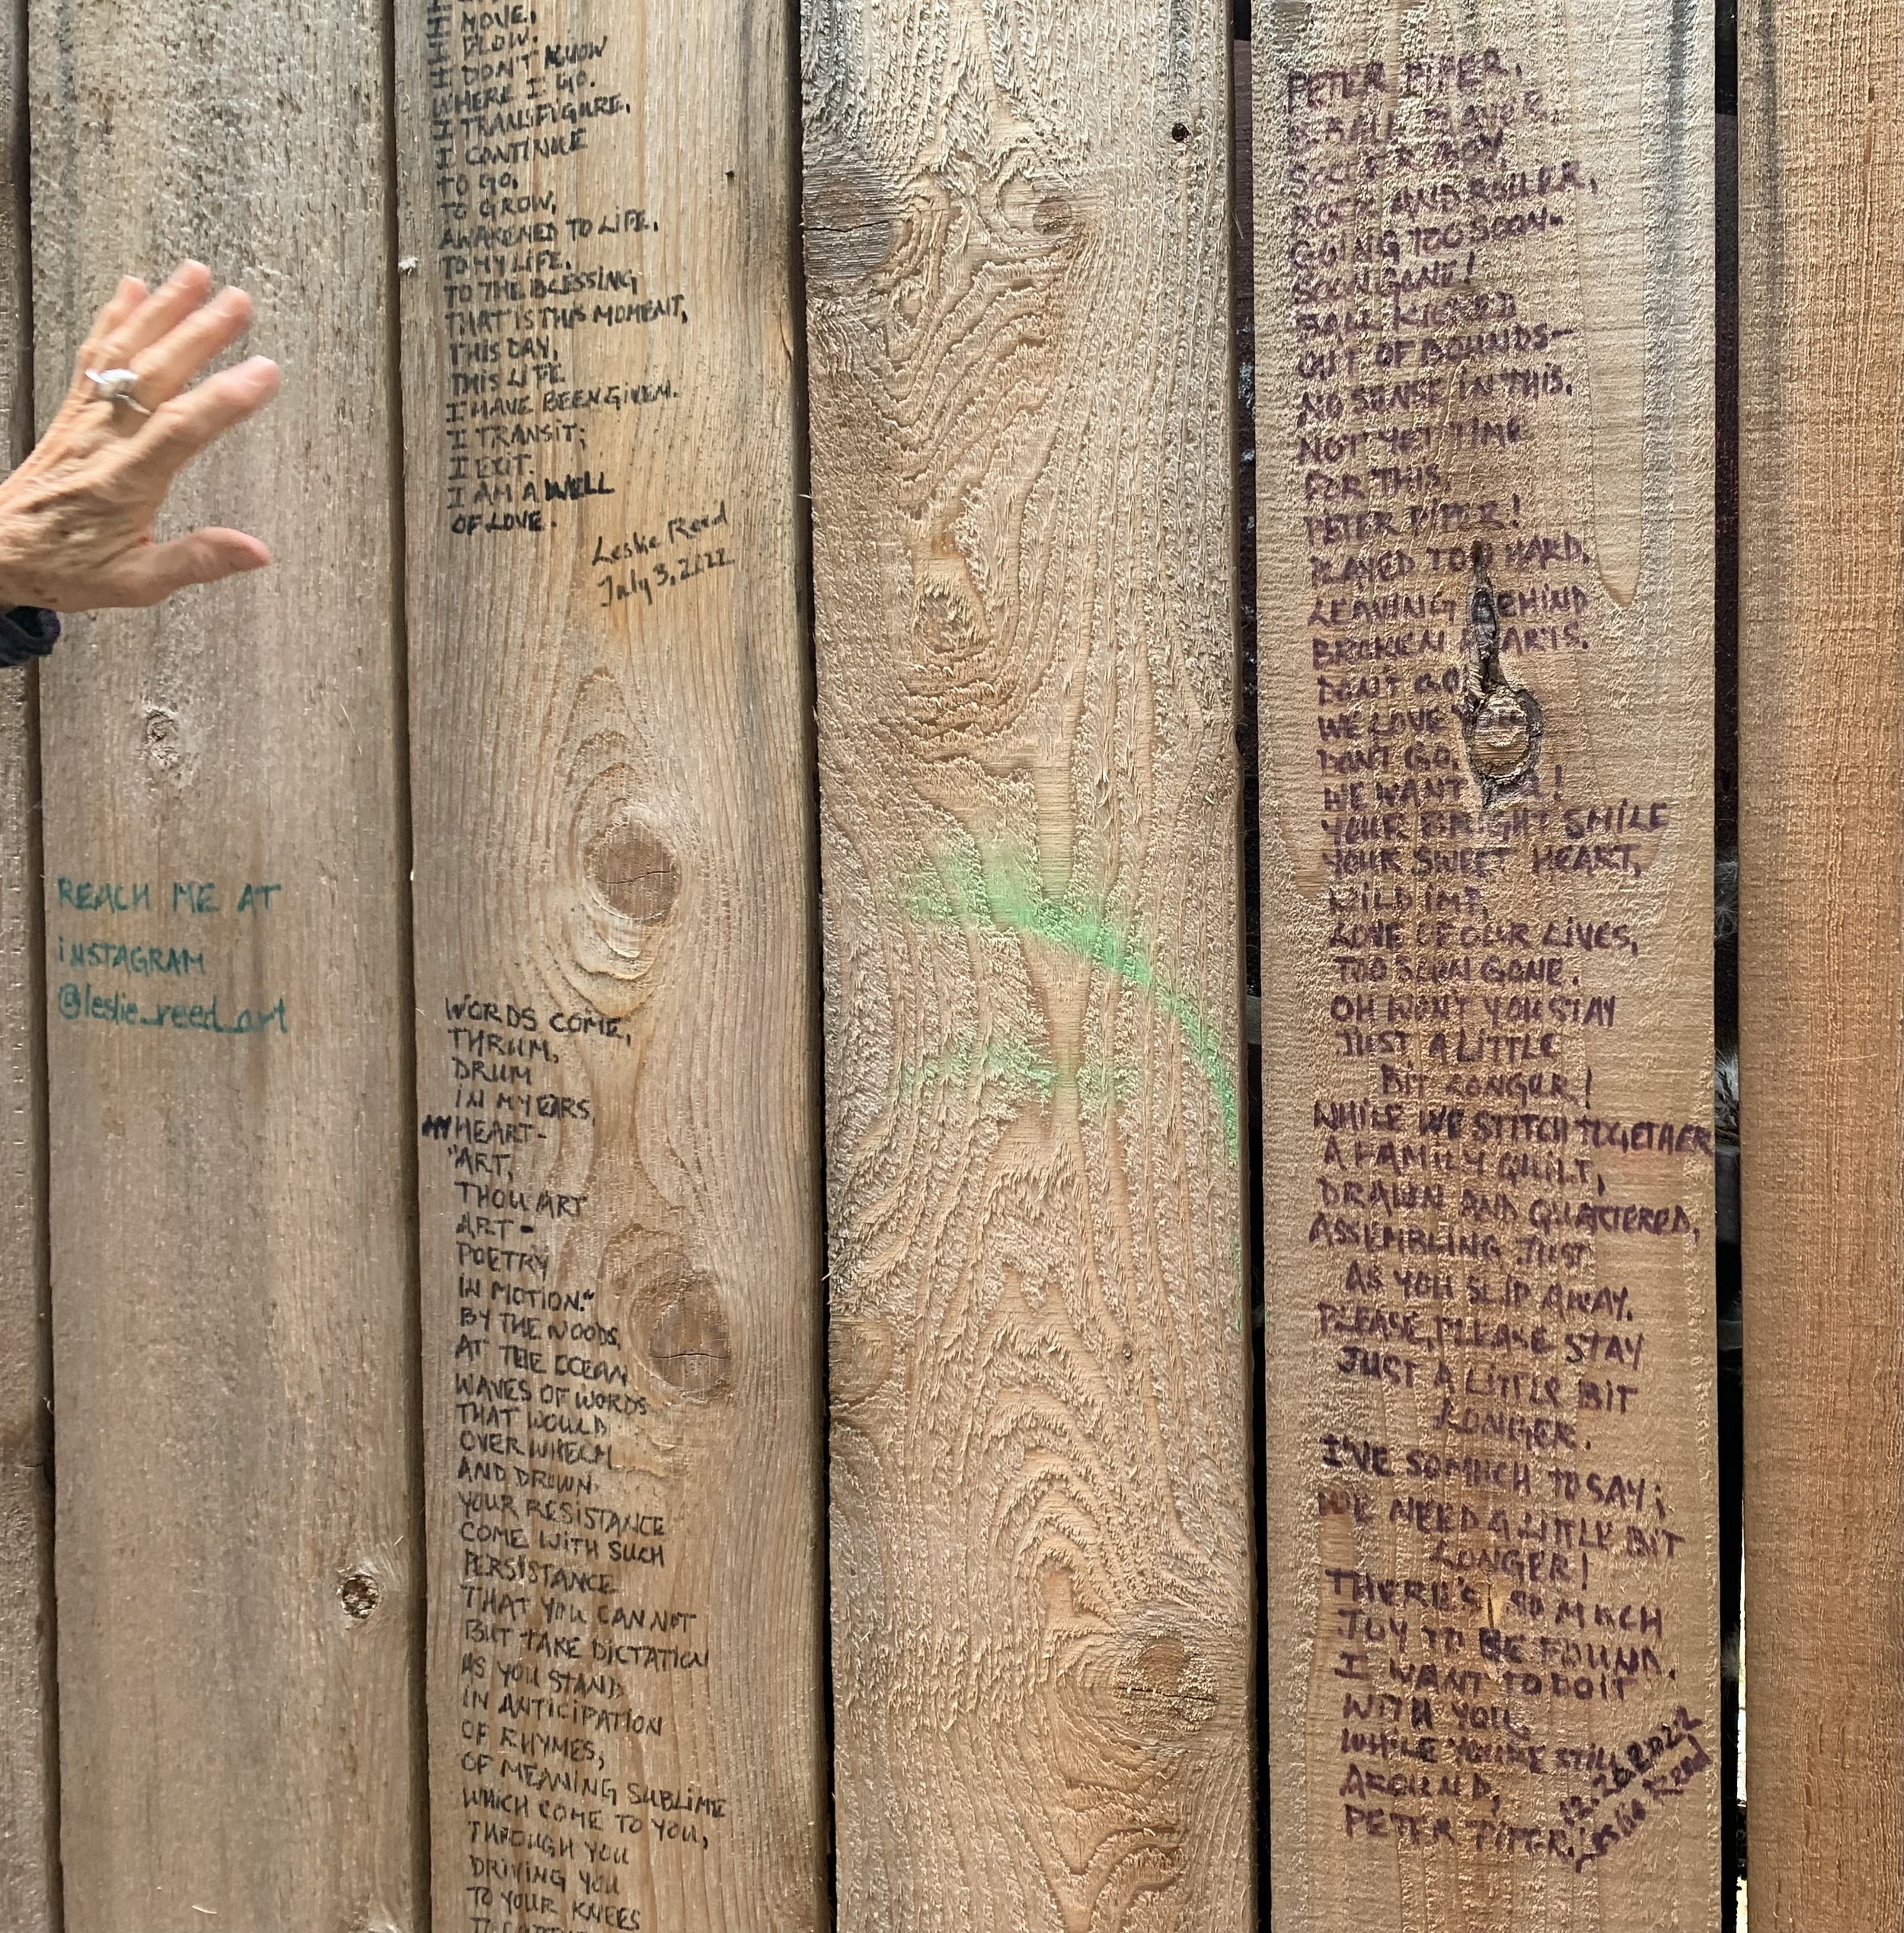 REACH ME AT
INSTAGRAM
@leslie_reed_art
I MOVE,
I BLOW.
I DON'T KNOW
WHERE I GO.
I TRANSFIGURE,
I CONTINUE
TO GO,
TO GROW,
AWAKENED TO LIFE,
TO MY LIFE,
TO THE BLESSING
THAT IS THIS MOMENT,
THIS DAY,
THIS LIFE
I HAVE BEEN GIVEN.
I TRANSIT;
I EXIT.
I AM A WELL
OF LOVE.
Leslie Reed
July 3, 2022
WORDS COME,
THRUM,
DRUM
IN MY EARS,
MY HEART-
"ART,
THOU ART
ART-
POETRY
IN MOTION."
BY THE WOODS,
AT THE OCEAN
WAVES OF WORDS
THAT WOULD
OVERWHELM
AND DROWN
YOUR RESISTANCE
COME WITH SUCH
PERSISTANCE
THAT YOU CANNOT
BUT TAKE DICTATION
AS YOU STAND
IN ANTICIPATION
OF RHYMES,
OF MEANING SUBLIME
WHICH COME TO YOU,
THROUGH YOU
DRIVING YOU
TO YOUR KNEES
PETER PIPER,
BALL PLAYER,
SOCCER BOY,
ROCK AND ROLLER,
GOING TOO SOON-
SOON GONE!
BALL KICKED
OUT OF BOUNDS-
NO SENSE IN THIS,
NOT YET TIME
FOR THIS,
PETER PIPER!
PLAYED TOO HARD,
LEAVING BEHIND
BROKEN HEARTS.
DON'T GO,
WE LOVE YOU
DON'T GO,
WE WANT YOU!
YOUR BRIGHT SMILE
YOUR SWEET HEART,
WILD IMP,
LOVE OF OUR LIVES,
TOO SOON GONE.
OH WON'T YOU STAY
JUST A LITTLE
BIT LONGER!
WHILE WE STITCH TOGETHER
A FAMILY QUILT,
DRAWN AND QUARTERED,
ASSEMBLING JUST
AS YOU SLIP AWAY.
PLEASE, PLEASE STAY
JUST A LITTLE BIT
LONGER.
I'VE SO MUCH TO SAY;
WE NEED A LITTLE BIT
LONGER!
THERE'S SO MUCH
JOY TO BE FOUND.
I WANT TO DO IT
WITH YOU,
WHILE YOU'RE STILL
AROUND,
PETER PIPER.
12.20.2022
Leslie Reed